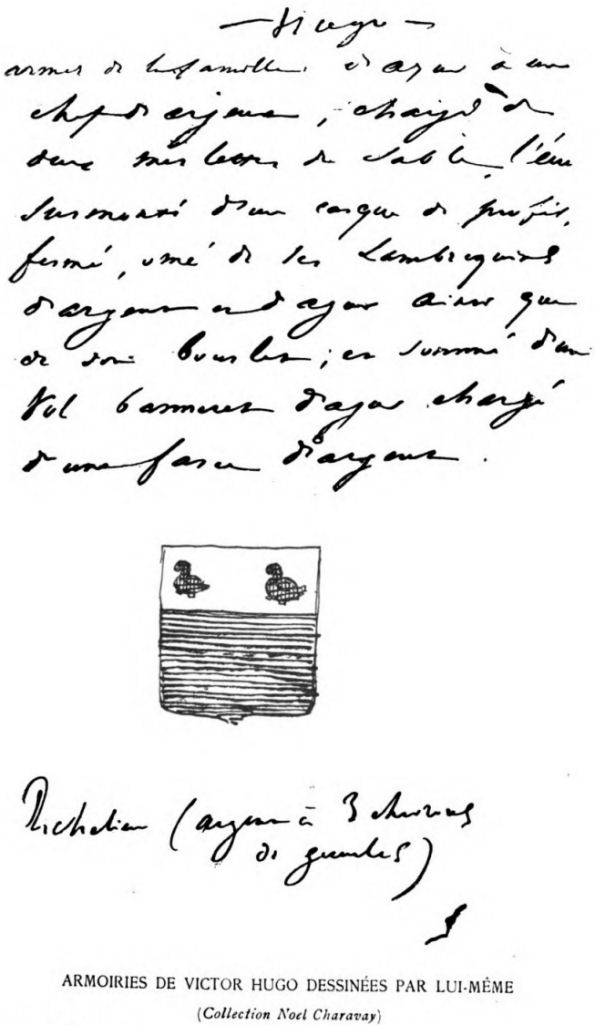 — Hugo —
armes de la famille : d'azur à un
chef d'argent, chargé de
deux merlettes de sable, l'écu
surmonté d'un casque de profil,
fermé, orné de ses Lambrequins
d'argent et d'azur ainsi que
de son bourlet ; et sommé d'un
Vol banneret d'azur chargé
d'une fasce d'argent.
Richelieu (argent à 3 chevrons
de gueules)
ARMOIRIES DE VICTOR HUGO DESSINÉES PAR LUI-MÊME
(Collection Noel Charavay)